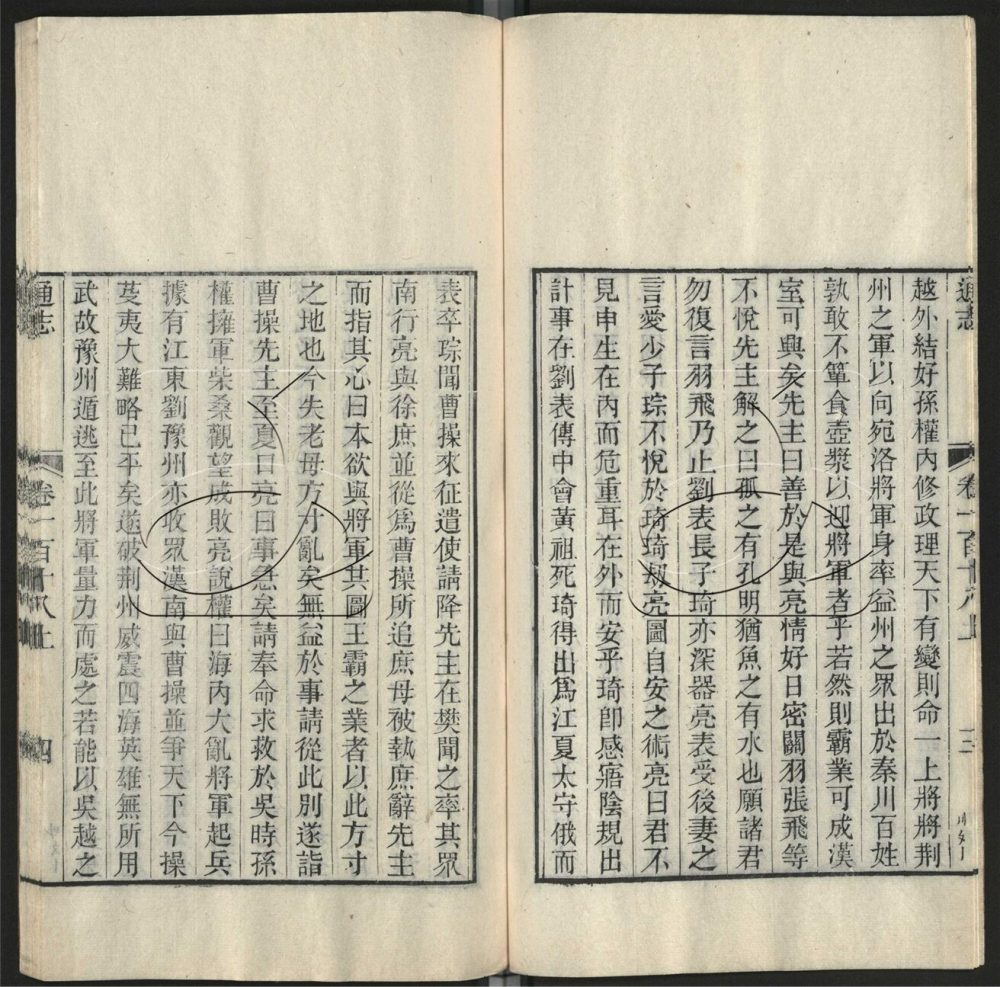 通志
卷一百十八上
三
越外結好孫權內修政理天下有變則命一上將將荆
州之軍以向宛洛將軍身率益州之眾出於秦川百姓
孰敢不簞食壺漿以迎將軍者乎若然則霸業可成漢
室可興矣先主曰善於是與亮情好日密關羽張飛等
不悅先主解之曰孤之有孔明猶魚之有水也願諸君
勿復言羽飛乃止劉表長子琦亦深器亮表受後妻之
言愛少子琮不悅於琦琦刼亮圖自安之術亮曰君不
見申生在內而危重耳在外而安乎琦卽感寤陰規出
計事在劉表傳中會黃祖死琦得出爲江夏太守俄而
表卒琮聞曹操來征遣使請降先主在樊聞之率其眾
南行亮與徐庶並從爲曹操所追庶母被執庶辭先主
而指其心曰本欲與將軍其圖王霸之業者以此方寸
之地也今失老母方寸亂矣無益於事請從此別遂詣
曹操先主至夏口亮曰事急矣請奉命求救於吳時孫
權擁軍柴桑觀望成敗亮說權曰海內大亂將軍起兵
據有江東劉豫州亦收眾漢南與曹操並爭天下今操
芟夷大難略已平矣遂破荆州威震四海英雄無所用
武故豫州遁逃至此將軍量力而處之若能以吳越之
通志
卷一百十八上
四